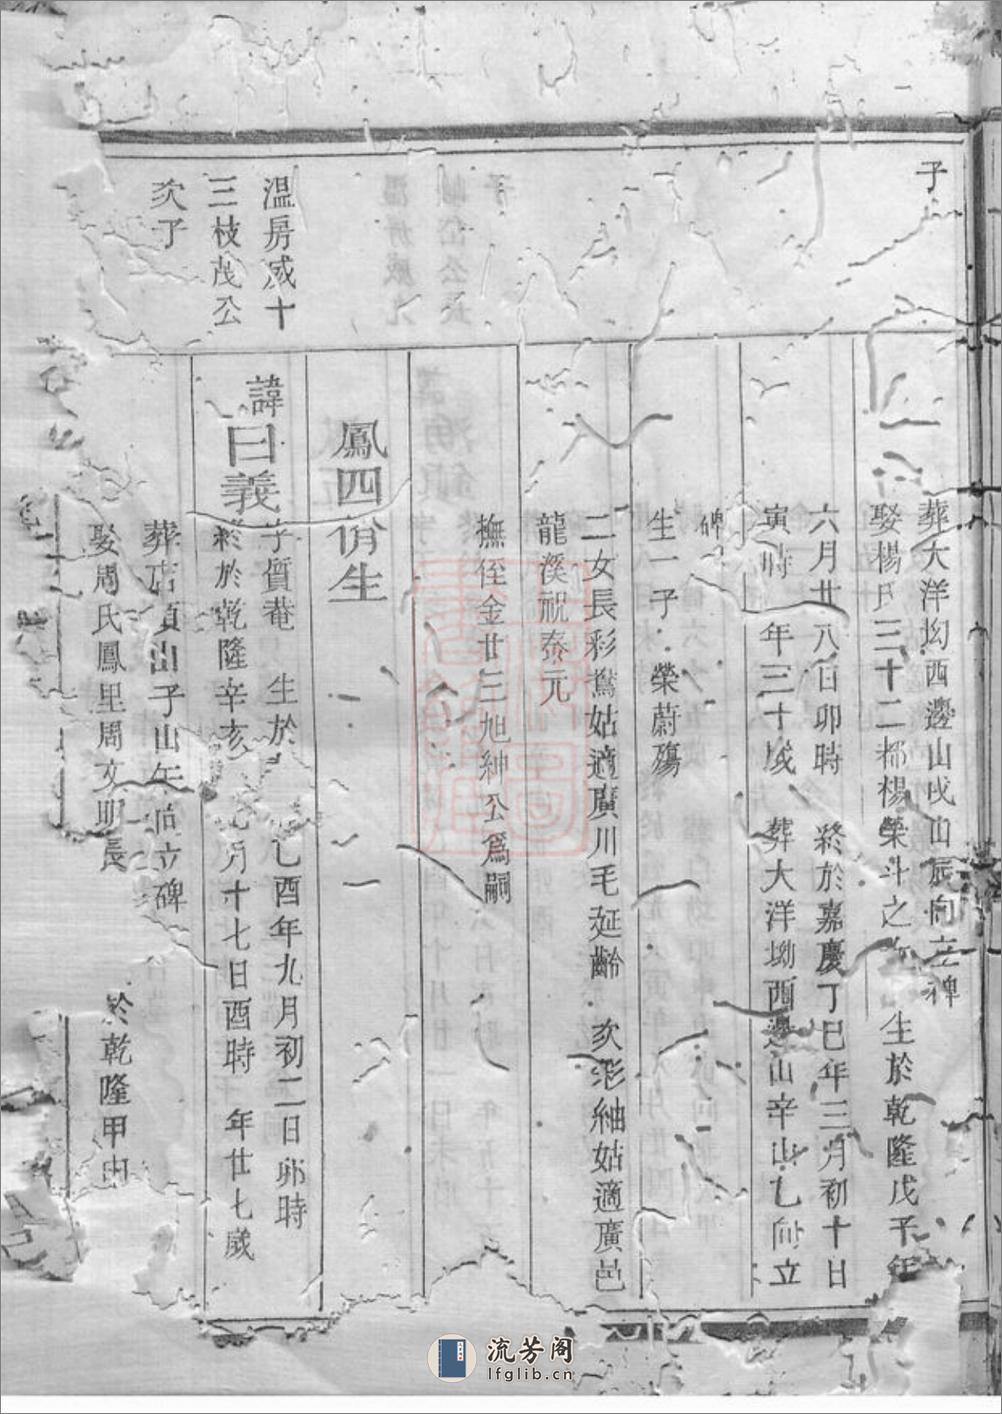 子
葬大洋㘭西邊山戌山辰向立碑
娶楊氏三十二都楊榮斗之女 生於乾隆戊子年
六月廿八日卯時 終於嘉慶丁巳年三月初十日
寅時 年三十歲 葬大洋㘭西邊山辛山乙向立
碑
生一子榮蔚殤
二女長彩鸞姑適廣川毛延齡 次彩紬姑適廣邑
龍溪祝泰元
撫侄金廿三旭紳公為嗣
鳳四份生
溫房咸十
三枝茂公
次子
諱曰義
字質菴 生於 乙酉年九月初二日卯時
終於乾隆辛亥 月十七日酉時 年廿七歲
葬店 山子山午向立碑
娶周氏鳳里周文明長 於乾隆甲申
流芳阁
lfglib.cn